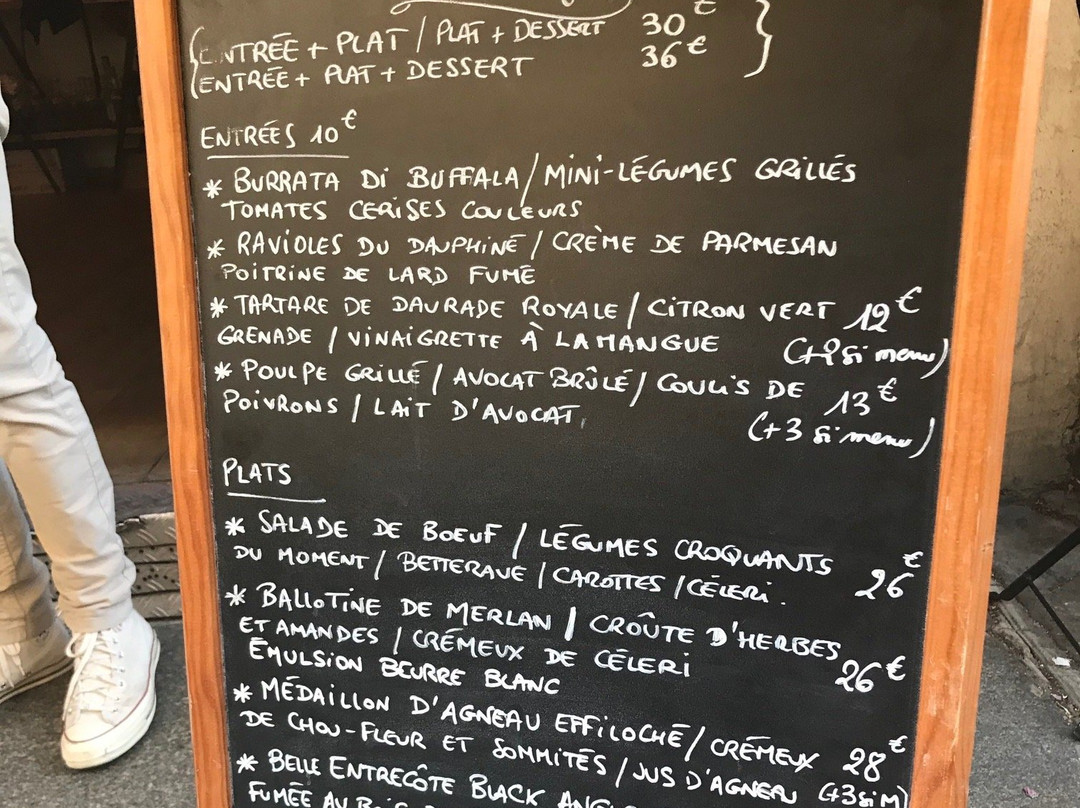 ENTRÉE + PLAT / PLAT + DESSERT 30€
ENTRÉE + PLAT + DESSERT 36€
ENTRÉES 10€
* BURRATA Di BUFFALA / MiNi-LÉGUMES GRiLLÉS
TOMATES CERiSES COULEURS
* RAViOLES DU DAUPHiNÉ / CRÈME DE PARMESAN
POiTRiNE DE LARD FUMÉ
* TARTARE DE DAURADE ROYALE / CiTRON VERT 12€
GRENADE / ViNAiGRETTE À LA MANGUE (+2 si menu)
* POULPE GRiLLÉ / AVOCAT BRÛLÉ / COULiS DE 13€
POiVRONS / LAiT D'AVOCAT (+3 si menu)
PLATS
* SALADE DE BOEUF / LÉGUMES CROQUANTS
DU MOMENT / BETTERAVE / CAROTTES / CÉLERi. 26€
* BALLOTiNE DE MERLAN / CROÛTE D'HERBES
ET AMANDES / CRÉMEUX DE CÉLERi 26€
ÉMULSiON BEURRE BLANC
* MÉDAiLLON D'AGNEAU EFFiLOCHÉ / CRÉMEUX 28€
DE CHOU-FLEUR ET SOMMiTÉS / JUS D'AGNEAU (+3 si M)
* BELLE ENTRECÔTE BLACK
FUMÉE AU